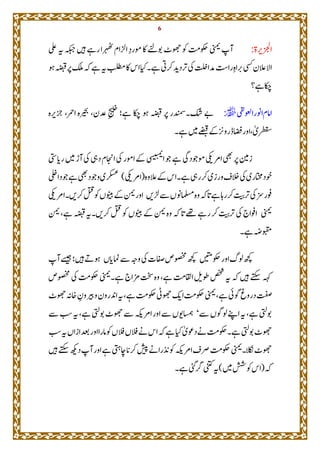 6
الجزیرة: آپ یمنی حکومت کو جھوٹ بولنے کا مورد الزام ٹھہرا رہے ہیں جبکہ یہ علی
الاعلان کسی براہ راست مداخلت کی تردید کرتی ہے۔ کیا اس کا مطلب ہے یہ کہ ملک پر قبضہ ہو
چکا ہے؟
امام انور العولقی: بے شک۔ سمندر پر قبضہ ہو چکا ہے؛ خلیج عدن، بحیرہ احمر، جزیرہ
سقطریٰ، اور فضاء ڈرونز کے قبضے میں ہے۔
زمین پر بھی امریکی موجودگی ہے جو ایمبیسی کے امور کے انجام دہی میں آزاد ریاستی
خودمختاری کی خلاف ورزی کر رہی ہے۔ اس کے علاوہ (امریکی) عسکری وجود بھی ہے جو داخلی
فورسز کی تربیت کر رہا ہے تاکہ وہ مسلمانوں سے لڑیں اور یمن کے بیٹوں کو قتل کریں۔ امریکی
یمنی افواج کی تربیت کر رہے تھے تاکہ وہ یمن کے بیٹوں کو قتل کریں۔ یہ قبضہ ہے، یمن
مقبوضہ ہے۔
کچھ لوگ اور حکومتیں کچھ مخصوص صفات کی وجہ سے نمایاں ہوتے ہیں؛ جیسے آپ
کہہ سکتے ہیں کہ یہ شخص طویل القامت ہے، وہ سخت مزاج ہے۔ یمنی حکومت کی مخصوص
صفت دروغ گوئی ہے، یمنی حکومت ایک جھوٹی حکومت ہے، یہ اندرون و بیرون خانہ جھوٹ
بولتی ہے، یہ اپنے لوگوں سے، ہمسایوں سے اور امریکہ سے جھوٹ بولتی ہے، یہ سب سے
جھوٹ بولتی ہے۔ حکومت نے دعویٰ کیا ہے کہ اس نے فلاں فلاں کو مارا اور بعد ازاں یہ سب
جھوٹ نکلا۔ یمنی حکومت صرف امریکہ کو نذرانے پیش کرنا چاہتی ہے اور آپ دیکھ سکتے ہیں
کہ (اس کوشش میں) یہ کتنی گر گئی ہے۔